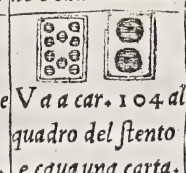 e V a a car. 104 al
quadro del ſtento
. e caua una carta.